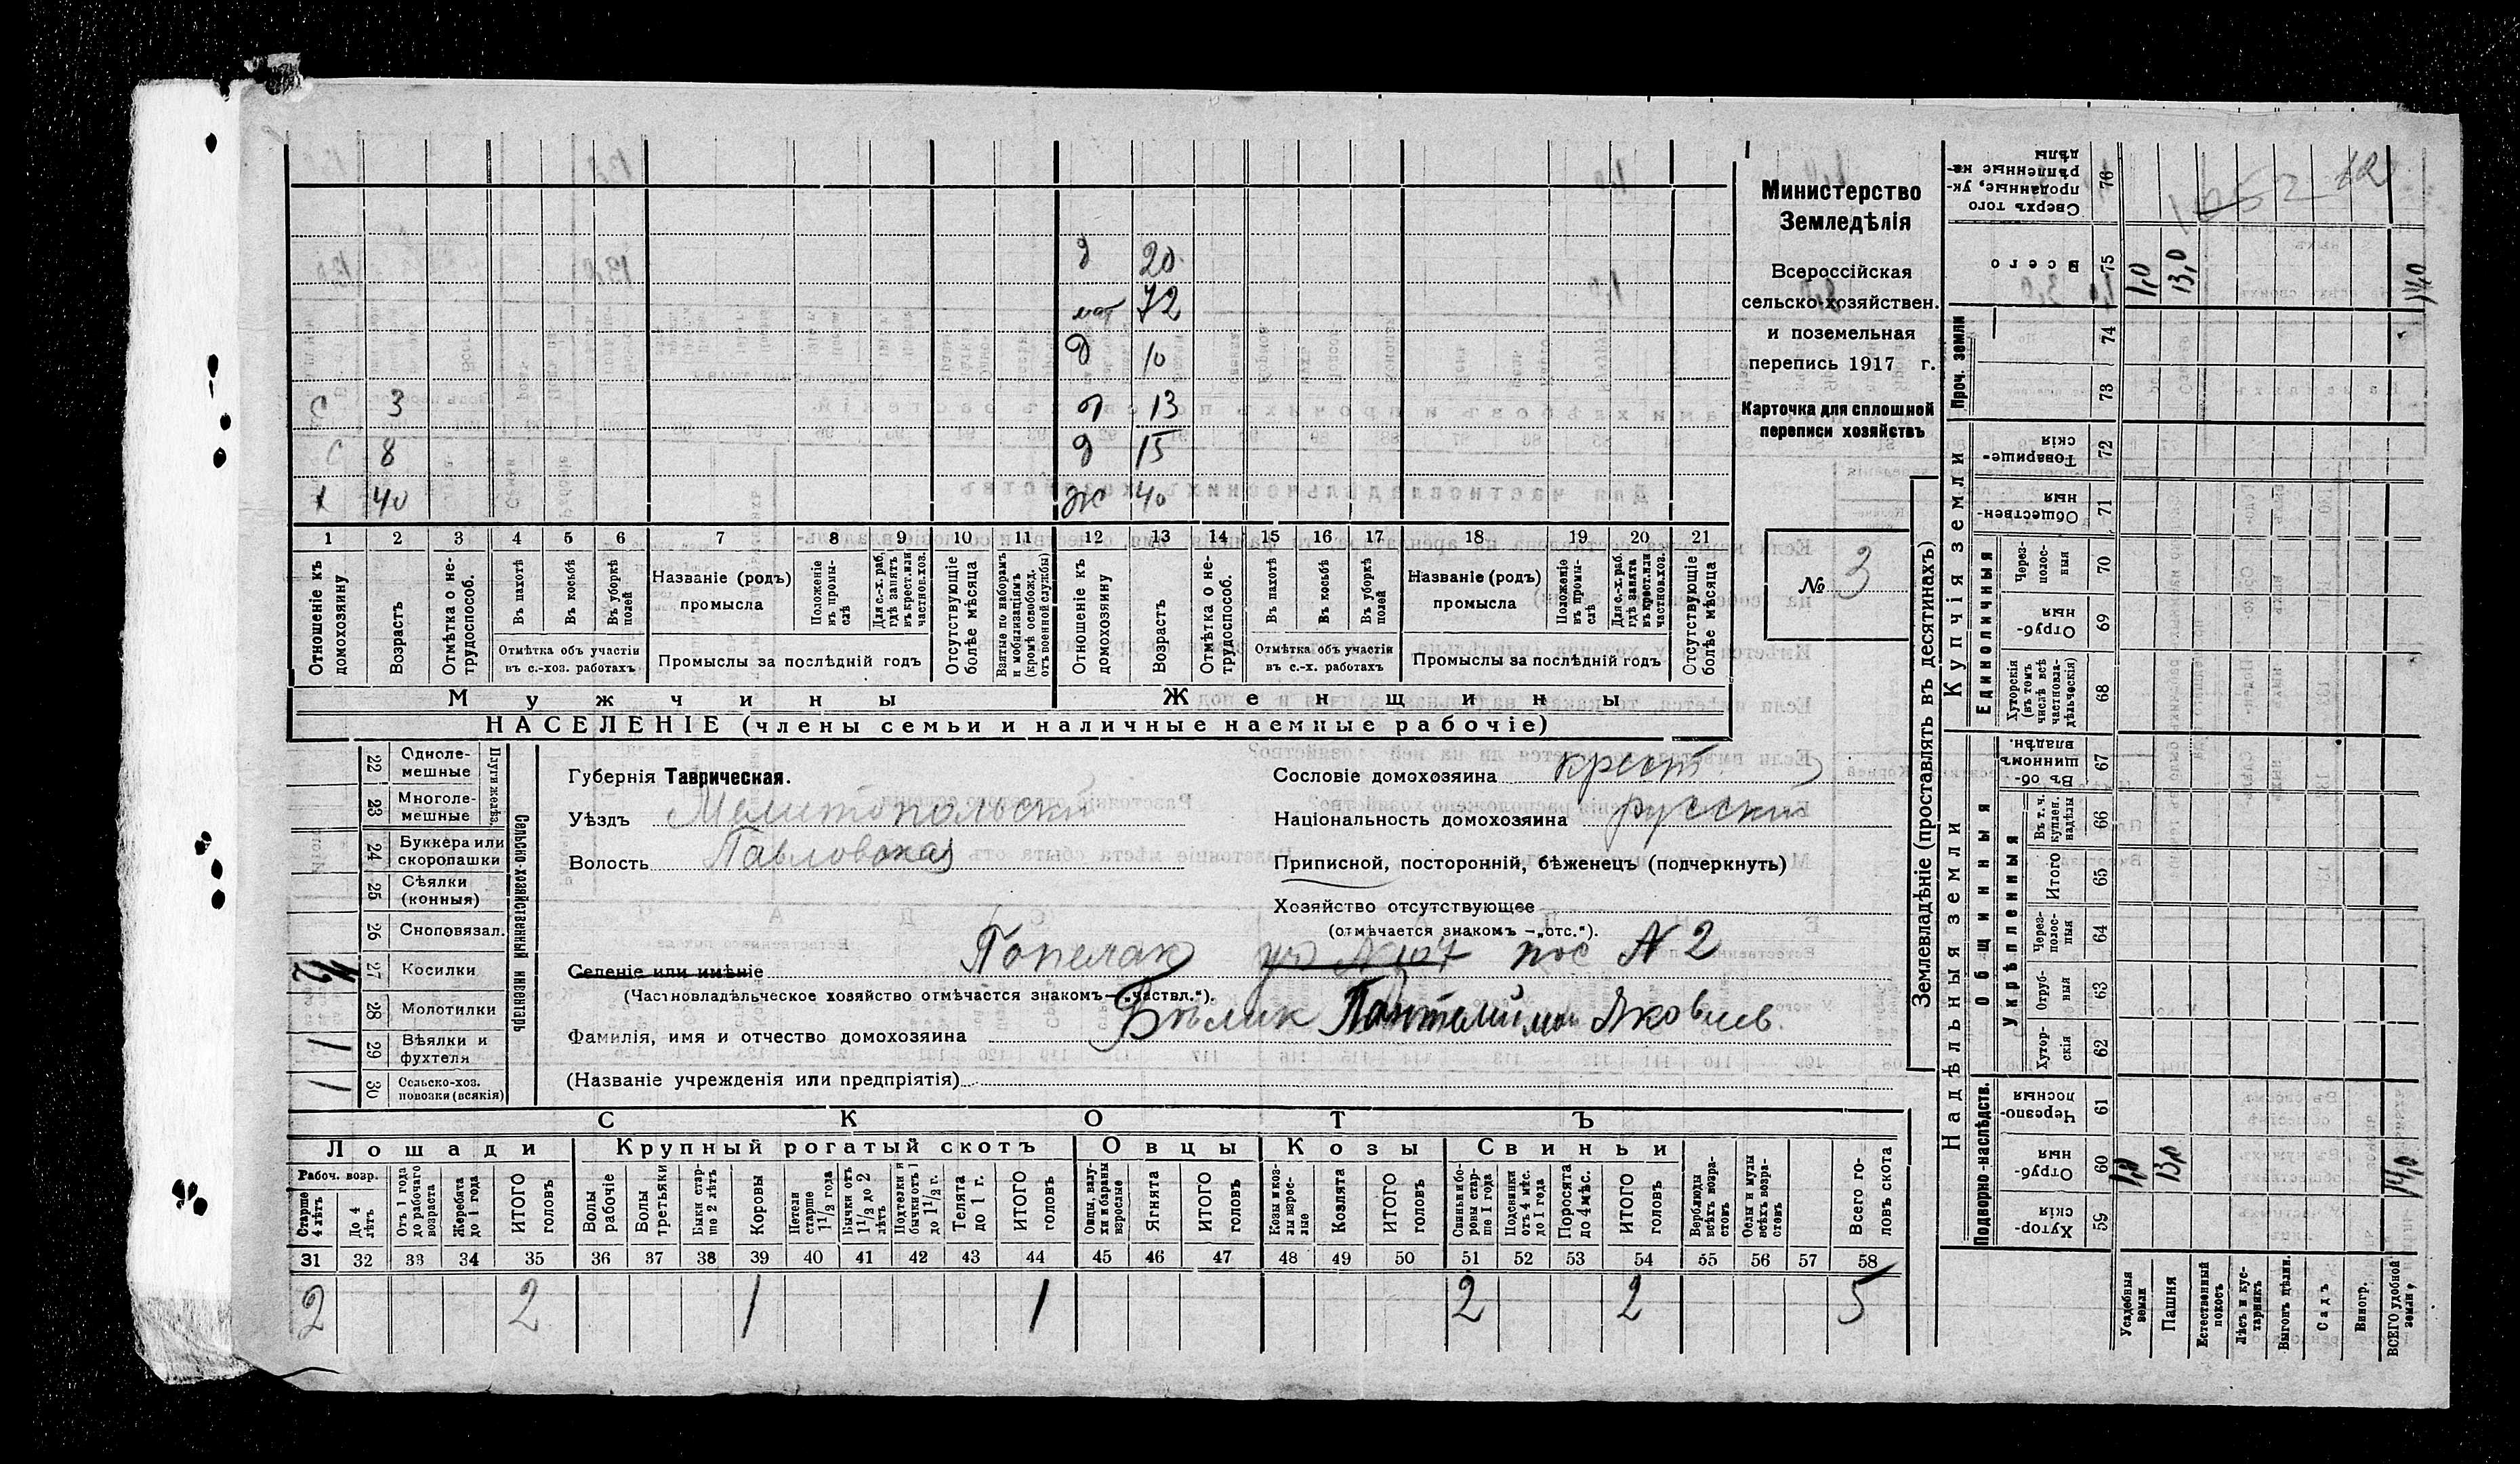 Министерство
Земледѣлія
Всероссійская
сельско-хозяйствен.
и поземельная
перепись 1917 г.
Карточка для сплошной
переписи хозяйствъ
№ 3
д 20
мат 72
д 10
с 3 д 13
с 8 д 15
х 40 ж 40
1 2 3 4 5 6 7 8 9 10 11 12 13 14 15 16 17 18 19 20 21
Отношеніе къ домохозяину
Возрастъ
Отмѣтка о не-трудоспособ.
Въ пахотѣ
Въ косьбѣ
Въ уборкѣ полей
Отмѣтка объ участіи
въ с.-хоз. работахъ
Названіе (родъ)
промысла
Положеніе въ промы-слѣ
Для с.-х. раб. гдѣ занятъ въ крест. или частнов. хоз.
Промыслы за послѣдній годъ
Отсутствующіе болѣе мѣсяца
Взятые по наборамъ и мобилизаціямъ (кромѣ освобожд. отъ военной службы)
Отношеніе къ домохозяину
Возрастъ
Отмѣтка о не-трудоспособ.
Въ пахотѣ
Въ косьбѣ
Въ уборкѣ полей
Отмѣтка объ участіи
въ с.-х. работахъ
Названіе (родъ)
промысла
Положеніе въ промы-слѣ
Для с.-х. раб. гдѣ занята въ крест. или частнов. хоз.
Промыслы за послѣдній годъ
Отсутствующіе болѣе мѣсяца
Мужчины Женщины
НАСЕЛЕНІЕ (члены семьи и наличные наемные рабочіе)
Сельско-хозяйственный инвентарь
Плуги желѣз.
22 Одноле-мешные
23 Многоле-мешные
24 Буккера или скоропашки
25 Сѣялки (конныя)
26 Сноповязал.
27 Косилки
28 Молотилки
1 29 Вѣялки и фухтеля
1 30 Сельско-хоз. повозки (всякія)
Губернія Таврическая.
Уѣздъ Мелитопольский
Волость Павловская
Сословіе домохозяина крест
Національность домохозяина русский
Приписной, посторонній, бѣженецъ (подчеркнуть)
Хозяйство отсутствующее
(отмѣчается знакомъ —„отс.“).
Селеніе или имѣніе пос № 2
(Частновладѣльческое хозяйство отмѣчается знакомъ—„частвл.“).
Фамилія, имя и отчество домохозяина Бѣлик Пантелимон Яковлев.
(Названіе учрежденія или предпріятія)
СКОТЪ
Лошади Крупный рогатый скотъ Овцы Козы Свиньи
Рабоч. возр.
Старше 4 лѣтъ
До 4 лѣтъ
Отъ 1 года до рабочаго возраста
Жеребята до 1 года
ИТОГО головъ
Волы рабочіе
Волы третьяки
Быки стар-ше 2 лѣтъ
Коровы
Нетели старше 1 1/2 года
Бычки отъ 1 1/2 до 2 лѣтъ
Подтелки и бычки отъ 1 до 1 1/2 г.
Телята до 1 г.
ИТОГО головъ
Овцы, валу-хи и бараны взрослые
Ягнята
ИТОГО головъ
Козы и коз-лы взрос-лые
Козлята
ИТОГО головъ
Свиньи и бо-ровы стар-ше 1 года
Подсвинки отъ 4 мѣс. до 1 года
Поросята до 4 мѣс.
ИТОГО головъ
Верблюды всѣхъ возра-стовъ
Ослы и мулы всѣхъ возра-стовъ
Всего го-ловъ скота
31 32 33 34 35 36 37 38 39 40 41 42 43 44 45 46 47 48 49 50 51 52 53 54 55 56 57 58
2 2 1 1 2 2 5
Землевладѣніе (проставлять въ десятинахъ)
Надѣльныя земли
Купчія земли
Проч. земли
Подворно-наслѣдств.
Общинныя
Укрѣпленныя
Единоличныя
Хутор-скія 59
Отруб-ныя 60 1,0 13,0 14,0
Черезпо-лосныя 61
Хутор-скія 62
Отруб-ныя 63
Черес-полос-ныя 64
Итого 65
Въ т. ч. куплен. надѣлы 66
Въ об-щинномъ владѣн. 67
Хуторскія (въ томъ числѣ всѣ частновла-дѣльческія) 68
Отруб-ныя 69
Через-полос-ныя 70
Обществен-ныя 71
Товарище-скія 72
73
74
Всего 75 1,0 13,0 14,0
Сверхъ того проданные, ук-рѣпленные на-дѣлы 76
Усадебныя земли
Пашня
Естественный покосъ
Лѣсъ и кус-тарникъ
Выгонъ цѣлин.
Садъ
Виногр.
ВСЕГО удобной земли